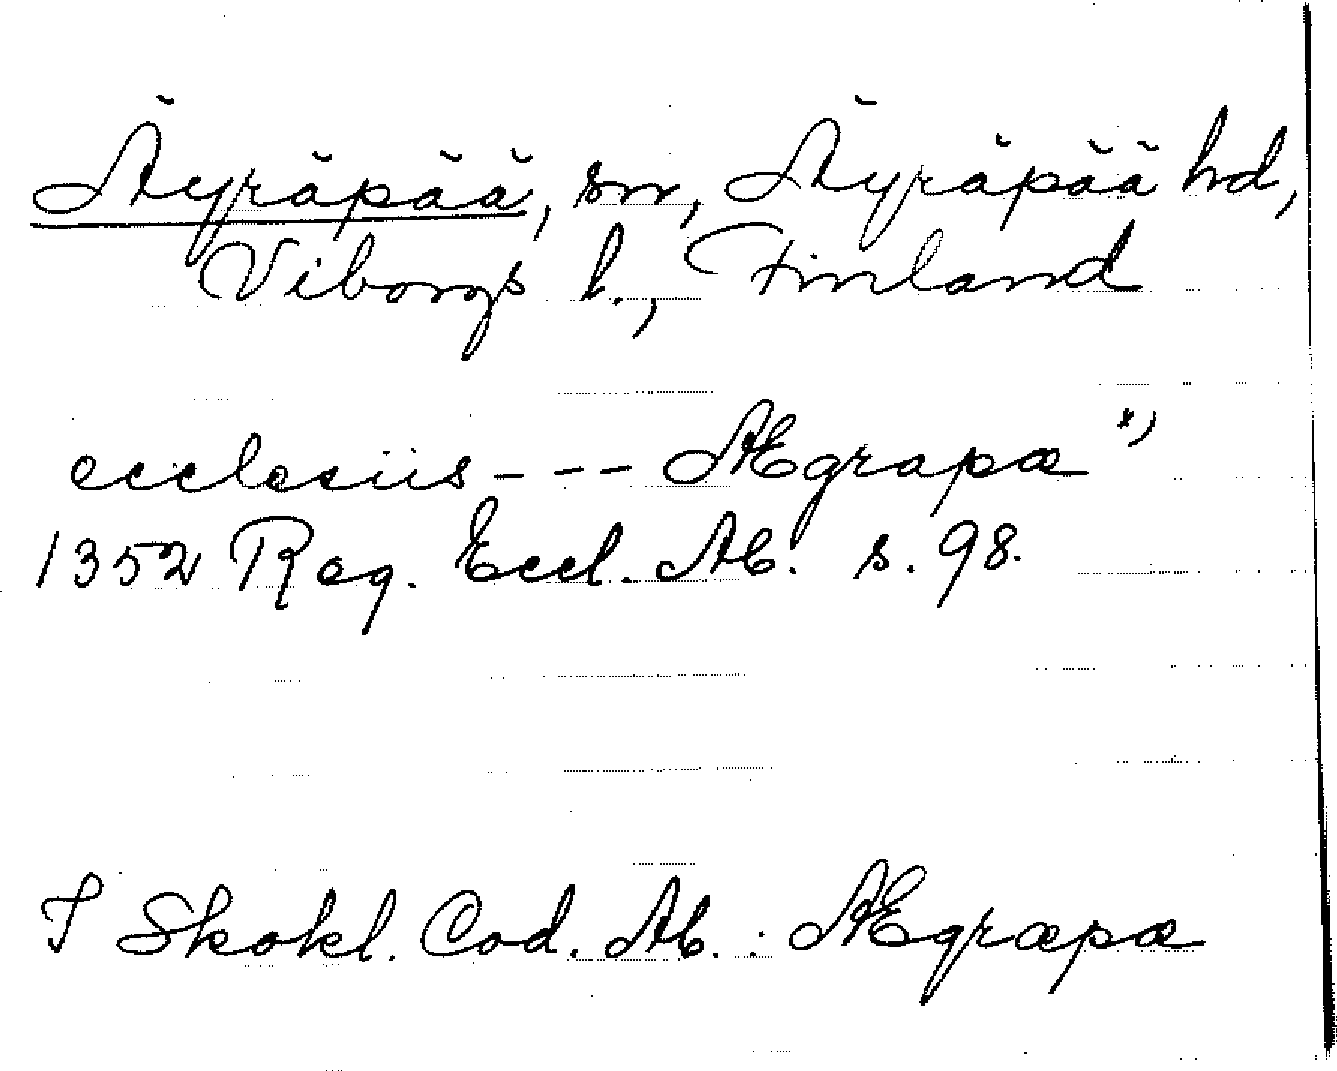 Äyräpää, sn, Äyräpää hd,
Viborgs l., Finland
ecclesiis - - - Ægrapæ *)
1352 Reg. Eccl. Ab. s. 98.
I Skokl. Cod. Ab. : Ægræpæ